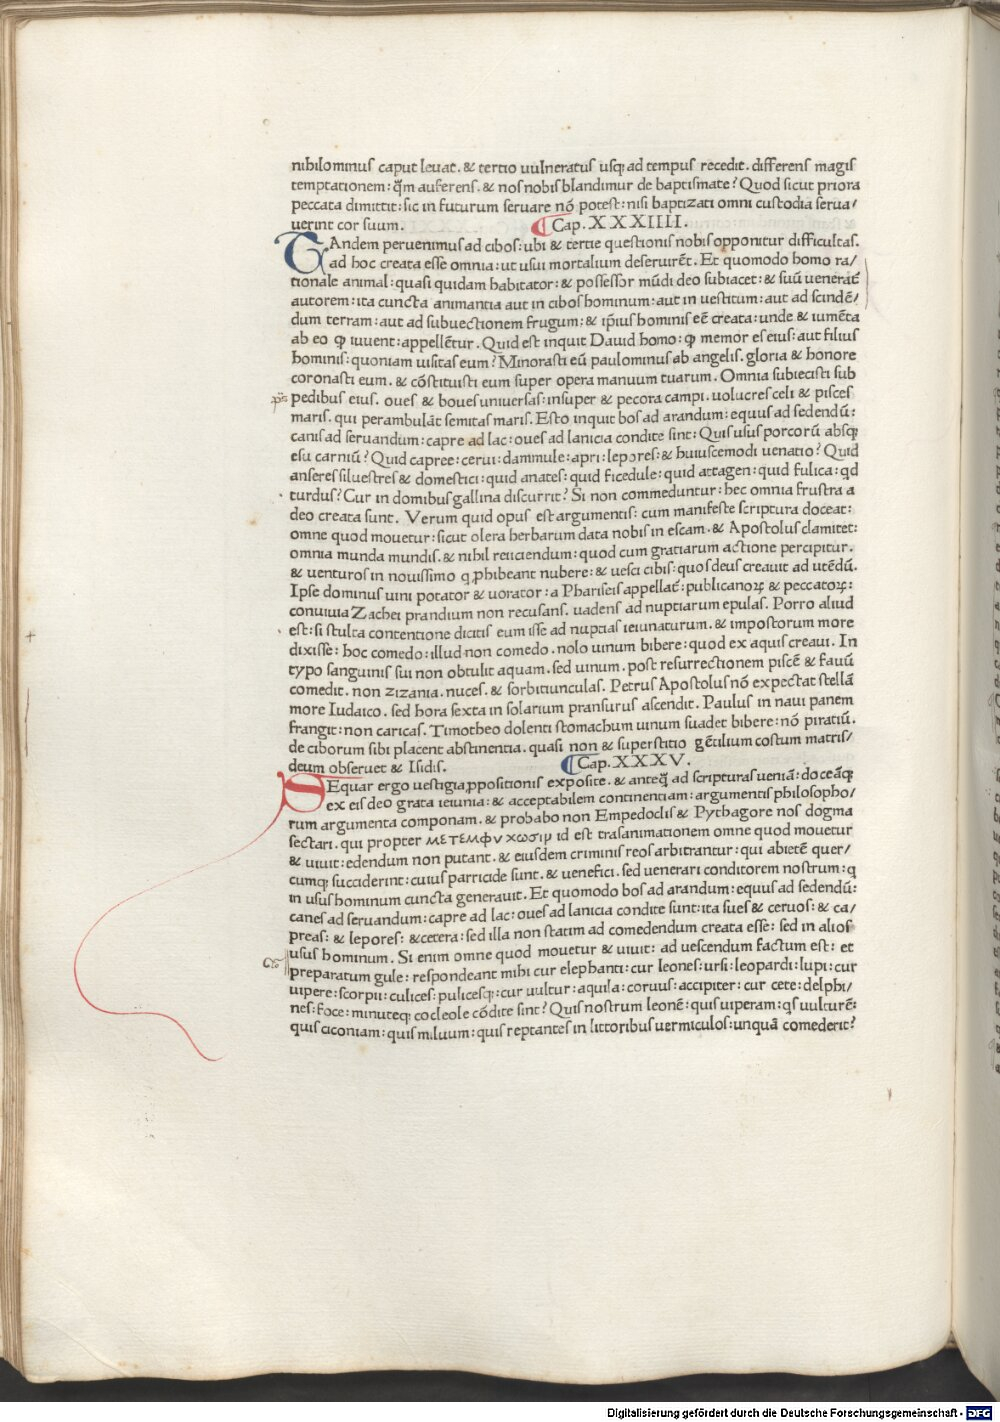 nihilominus caput leuat. & tertio uulneratus usq; ad tempus recedit. differens magis
temptationem: q̃m auferens. & nos nobis blandimur de baptismate? Quod sicut priora
peccata dimittit: sic in futurum seruare nõ potest: nisi baptizati omni custodia serua/
uerint cor suum. Cap. XXXIIII.
TAndem peruenimus ad cibos: ubi & tertie questionis nobis opponitur difficultas.
ad hoc creata esse omnia: ut usui mortalium deseruirẽt. Et quomodo homo ra/
tionale animal: quasi quidam habitator: & possessor mũdi deo subiacet: & suũ ueneratᷣ
autorem: ita cuncta animantia aut in cibos hominum: aut in uestitum: aut ad scindẽ/
dum terram: aut ad subuectionem frugum: & ip̃ius hominis eẽ creata: unde & iumẽta
ab eo ꝙ iuuent: appellẽtur. Quid est inquit Dauid homo: ꝙ memor es eius: aut filius
hominis: quoniam uisitas eum? Minorasti eũ paulominus ab angelis. gloria & honore
coronasti eum. & cõstituisti eum super opera manuum tuarum. Omnia subiecisti sub
pedibus eius. oues & boues uniuersas: insuper & pecora campi. uolucres celi & pisces
maris. qui perambulãt semitas maris. Esto inquit bos ad arandum: equus ad sedendũ:
canis ad seruandum: capre ad lac: oues ad lanicia condite sint: Quis usus porcorũ absq;
esu carniũ? Quid capree: cerui: dammule: apri: lepores: & huiuscemodi uenatio? Quid
anseres siluestres & domestici: quid anates: quid ficedule: quid attagen: quid fulica: qd
turdus? Cur in domibus gallina discurrit? Si non commeduntur: hec omnia frustra a
deo creata sunt. Verum quid opus est argumentis: cum manifeste scriptura doceat:
omne quod mouetur: sicut olera herbarum data nobis in escam. & Apostolus clamitet:
omnia munda mundis. & nihil reiiciendum: quod cum gratiarum actione percipitur.
& uenturos in nouissimo q ꝓhibeant nubere: & uesci cibis: quos deus creauit ad utẽdũ.
Ipse dominus uini potator & uorator: a Phariseis appellatᷣ: publicanoꝝ & peccatoꝝ:
conuiuia Zachei prandium non recusans. uadens ad nuptiarum epulas. Porro aliud
est: si stulta contentione dicitis eum isse ad nuptias ieiunaturum. & impostorum more
dixisse: hoc comedo: illud non comedo. nolo uinum bibere: quod ex aquis creaui. In
typo sanguinis sui non obtulit aquam. sed uinum. post resurrectionem piscẽ & fauũ
comedit. non zizania. nuces. & sorbitiunculas. Petrus Apostolus nõ expectat stellã
more Iudaico. sed hora sexta in solarium pransurus ascendit. Paulus in naui panem
frangit: non caricas. Timotheo dolenti stomachum uinum suadet bibere: nõ piratiũ.
de ciborum sibi placent abstinentia. quasi non & superstitio gẽtilium costum matris/
deum obseruet & Isidis. Cap. XXXV.
SEquar ergo uestigia ꝓpositionis exposite. & anteq̃ ad scripturas ueniã: doceãq;
ex eis deo grata ieiunia: & acceptabilem continentiam: argumentis philosopho/
rum argumenta componam. & probabo non Empedoclis & Pythagore nos dogma
sectari. qui propter μετεμφυχωσιν id est trãsanimationem omne quod mouetur
& uiuit: edendum non putant. & eiusdem criminis reos arbitrantur: qui abietẽ quer/
cumq; succiderint: cuius parricide sunt. & uenefici. sed uenerari conditorem nostrum: q
in usus hominum cuncta generauit. Et quomodo bos ad arandum: equus ad sedendũ:
canes ad seruandum: capre ad lac: oues ad lanicia condite sunt: ita sues & ceruos: & ca/
preas: & lepores: & cetera: sed illa non statim ad comedendum creata esse: sed in alios
usus hominum. Si enim omne quod mouetur & uiuit: ad uescendum factum est: et
preparatum gule: respondeant mihi cur elephanti: cur leones: ursi: leopardi: lupi: cur
uipere: scorpii: culices: pulicesq;: cur uultur: aquila: coruus: accipiter: cur cete: delphi/
nes: foce: minuteq; cocleole cõdite sint? Quis nostrum leonẽ: quis uiperam: qs uulturẽ:
quis ciconiam: quis miluum: quis reptantes in littoribus uermiculos: unquã comederit?
Digitalisierung gefördert durch die Deutsche Forschungsgemeinschaft - DFG